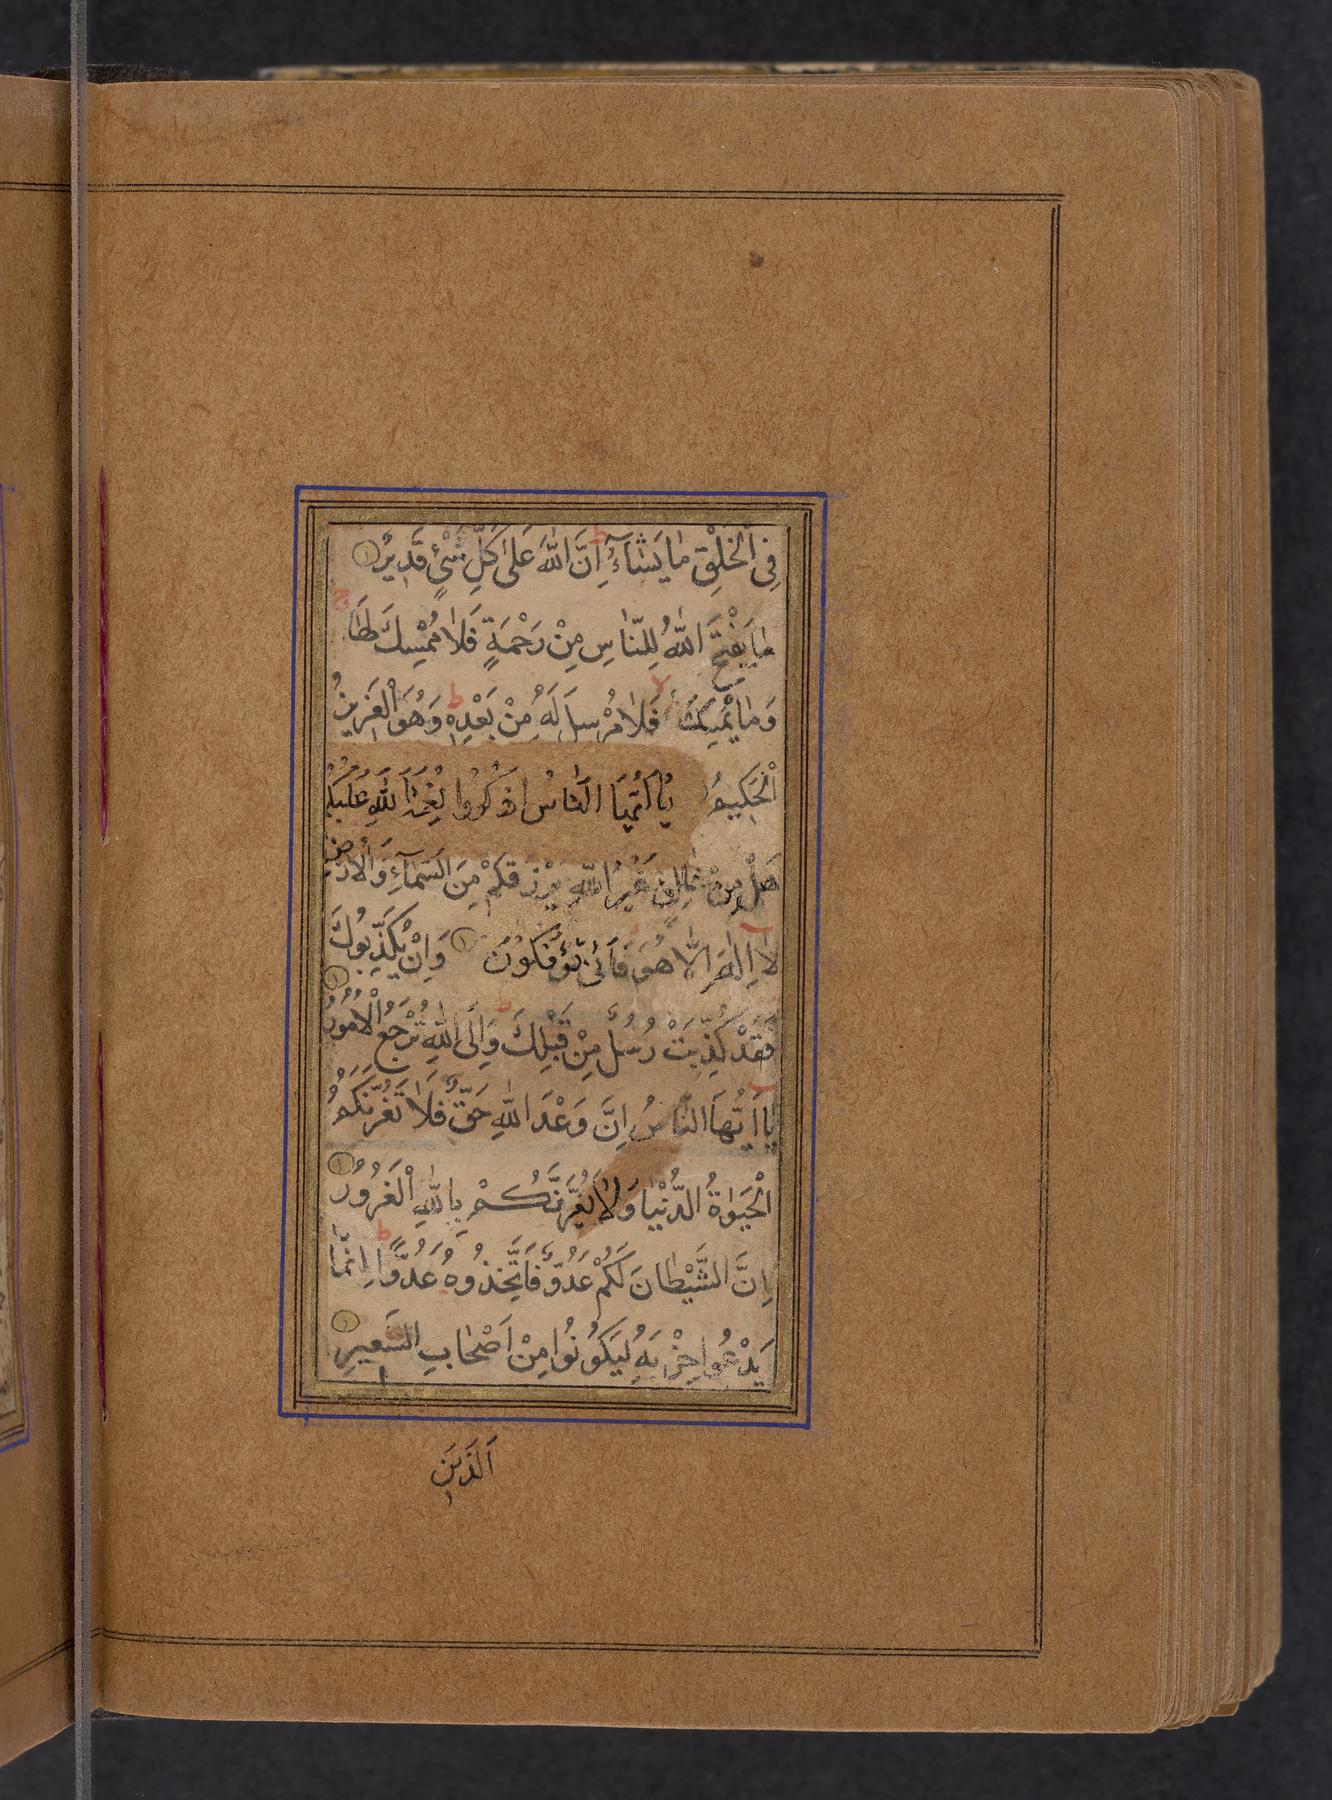 فِي الْخَلْقِ مٰا يَشٰآءُ اِنَّ اللّٰهَ عَلىٰ كُلِّ شَيْئٍ قَدِيرٌ
مٰا يَفْتَحِ اللّٰهُ لِلنّٰاسِ مِنْ رَحْمَةٍ فَلاٰ مُمْسِكَ لَهٰا
وَمٰا يُمْسِكْ فَلاٰ مُرْسِلَ لَهُ مِنْ بَعْدِهِ وَهُوَ الْعَزِيزُ
الْحَكِيمُ يٰا اَيُّهَا النّٰاسُ اذْكُرُوا نِعْمَتَ اللّٰهِ عَلَيْكُمْ
هَلْ مِنْ خٰالِقٍ غَيْرُ اللّٰهِ يَرْزُقُكُمْ مِنَ السَّمٰآءِ وَالْاَرْضِ
لاٰ اِلٰهَ اِلّٰا هُوَ فَاَنّىٰ تُؤْفَكُونَ وَاِنْ يُكَذِّبُوكَ
فَقَدْ كُذِّبَتْ رُسُلٌ مِنْ قَبْلِكَ وَاِلَى اللّٰهِ تُرْجَعُ الْاُمُورُ
يٰا اَيُّهَا النّٰاسُ اِنَّ وَعْدَ اللّٰهِ حَقٌّ فَلاٰ تَغُرَّنَّكُمُ
الْحَيٰوةُ الدُّنْيٰا وَلاٰ يَغُرَّنَّكُمْ بِاللّٰهِ الْغَرُورُ
اِنَّ الشَّيْطٰانَ لَكُمْ عَدُوٌّ فَاتَّخِذُوهُ عَدُوًّا اِنَّمٰا
يَدْعُوا حِزْبَهُ لِيَكُونُوا مِنْ اَصْحٰابِ السَّعِيرِ
اَلَّذِينَ